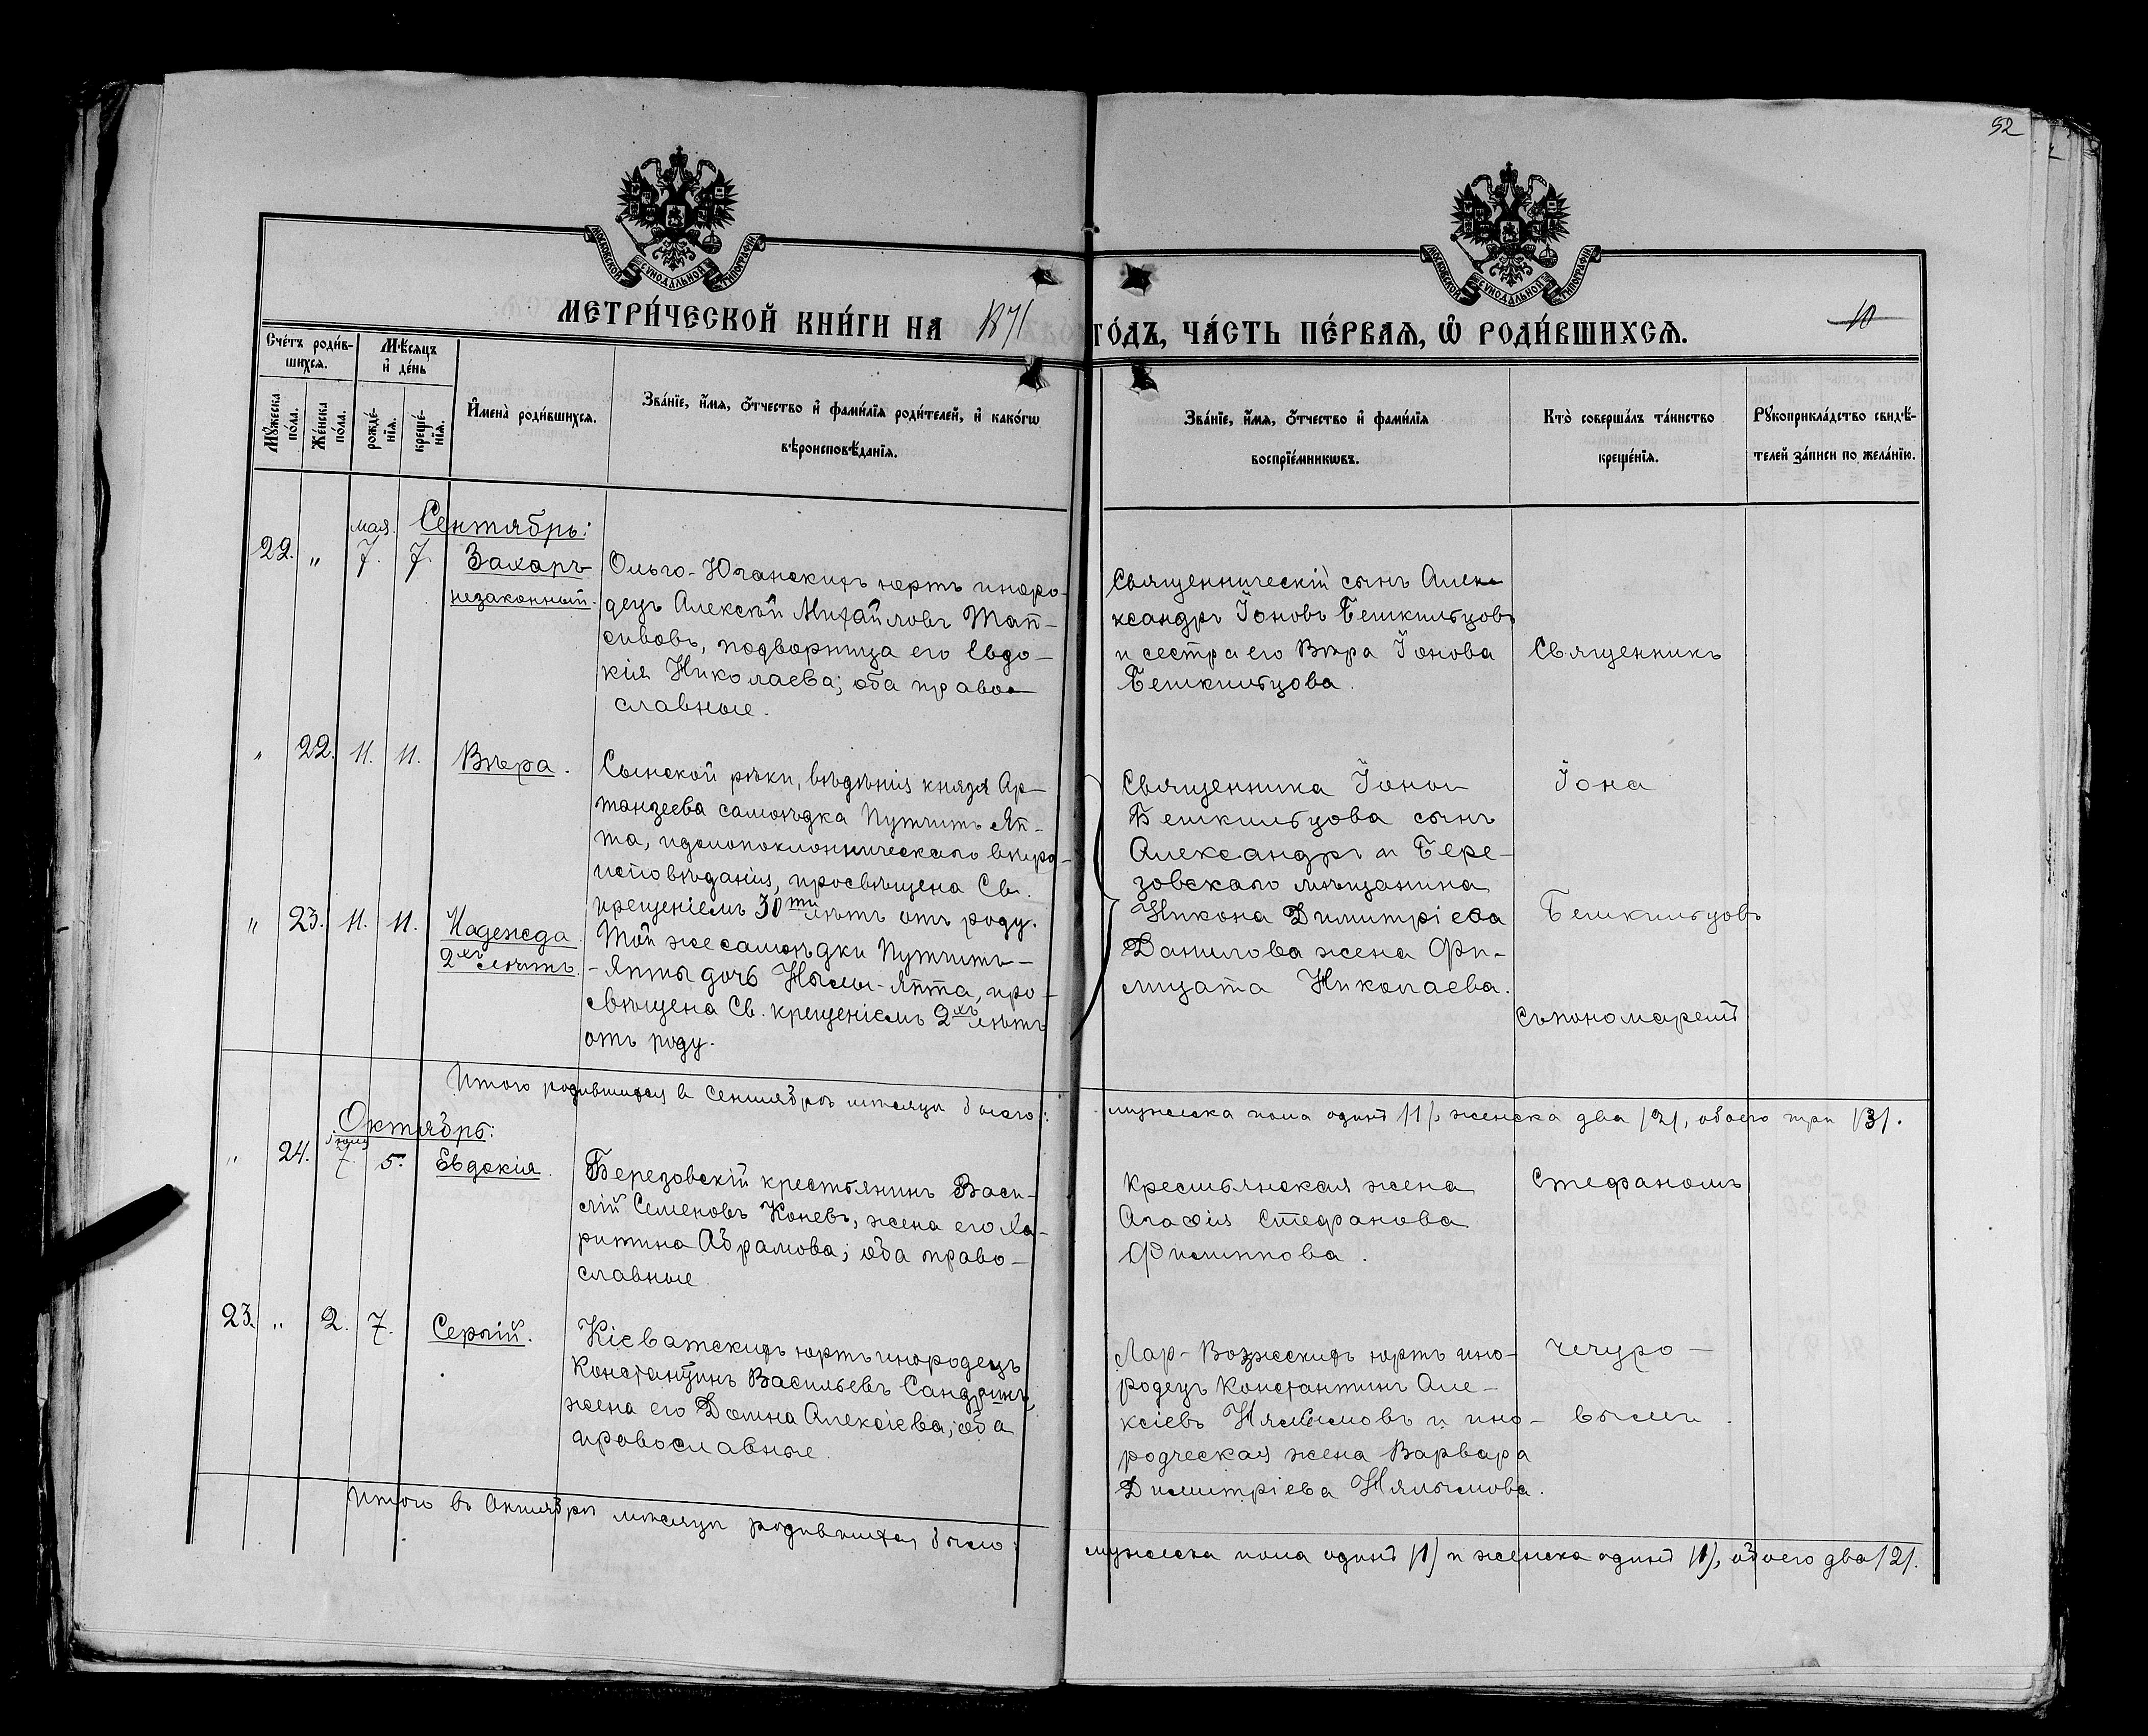 52
МОСКОВСКОЙ СУНОДАЛЬНОЙ ТИПОГРАФІИ.
МОСКОВСКОЙ СУНОДАЛЬНОЙ ТИПОГРАФІИ.
МЕТРИ́ЧЕСКОЙ КНИ́ГИ НА 1871
ГО́ДЪ, ЧА́СТЬ ПЕ́РВАѦ, Ѡ҆ РОДИ́ВШИХСѦ.
10
Сче́тъ роди́в-
шихсѧ.
Мѣ́сѧцъ
и҆ де́нь
Мꙋ́жеска
по́ла.
Же́нска
по́ла.
рожде́-
нїѧ.
креще́-
нїѧ.
И҆мена̀ роди́вшихсѧ.
Зва́нїе, и҆́мѧ, ѻ҆́тчество и҆ фами́лїѧ роди́телей, и҆ како́гѡ
вѣроисповѣ́данїѧ.
Зва́нїе, и҆́мѧ, ѻ҆́тчество и҆ фами́лїѧ
воспрїе́мникѡвъ.
Кто̀ соверша́лъ та́инство
креще́нїѧ.
Рꙋкоприкла́дство свидѣ́-
телей за́писи по жела́нїю.
Сентябрь:
мая.
22. " 7. 7. Захаръ
незаконный.
Ольго-Юганскихъ юртъ иноро-
децъ Алексѣй Михайловъ Тап-
сиковъ, подворница его Евдо-
кія Николаева; оба право-
славные.
Священническій сынъ Алек-
ксандръ Іоновъ Бешкильцовъ
и сестра его Вѣра Іонова
Бешкильцова.
Священникъ
" 22. 11. 11. Вѣра.
Сынской рѣки, вѣдѣнія князя Ар-
танзеева самоѣдка Путлить Яп-
та, идолопоклонническаго вѣро-
исповѣданія, просвѣщена Св.
крещеніемъ 30ти лѣтъ отъ роду.
Священника Іоны
Бешкильцова сынъ
Александръ и Бере-
зовскаго мѣщанина
Никона Димитріева
Данилова жена Фи-
лицата Николаева.
Іона
Бешкильцовъ
съ пономаремъ
" 23. 11. 11. Надежда
2хъ лѣтъ.
Той же самоѣдки Путлить-
-Япты дочь Нылы-Япта, про-
свѣщена Св. крещеніемъ 2хъ лѣтъ
отъ роду.
Итого родившихся въ Сентябрѣ мѣсяцѣ было:
мужеска пола одинъ /1/, женска два /2/, обоего три /3/.
Октябрь:
Іюля
" 24. 7. 5. Евдокія.
Березовскій крестьянинъ Васи-
лій Семеновъ Коневъ, жена его Ха-
ритина Абрамова; оба право-
славные
Крестьянская жена
Агафія Стефанова
Филиппова.
Стефаномъ
23. " 2. 7. Сергій.
Кіеватскихъ юртъ инородецъ
Константинъ Васильевъ Сандринъ,
жена его Домна Алексіева; оба
православные.
Лар-Возжескихъ юртъ ино-
родецъ Константинъ Але-
ксіевъ Нялымовъ и ино-
родческая жена Варвара
Димитріева Нялымова.
Чечуро-
вымъ.
Итого въ Октябрѣ мѣсяцѣ родившихся было:
мужеска пола одинъ /1/ и женска одинъ /1/, обоего два /2/.